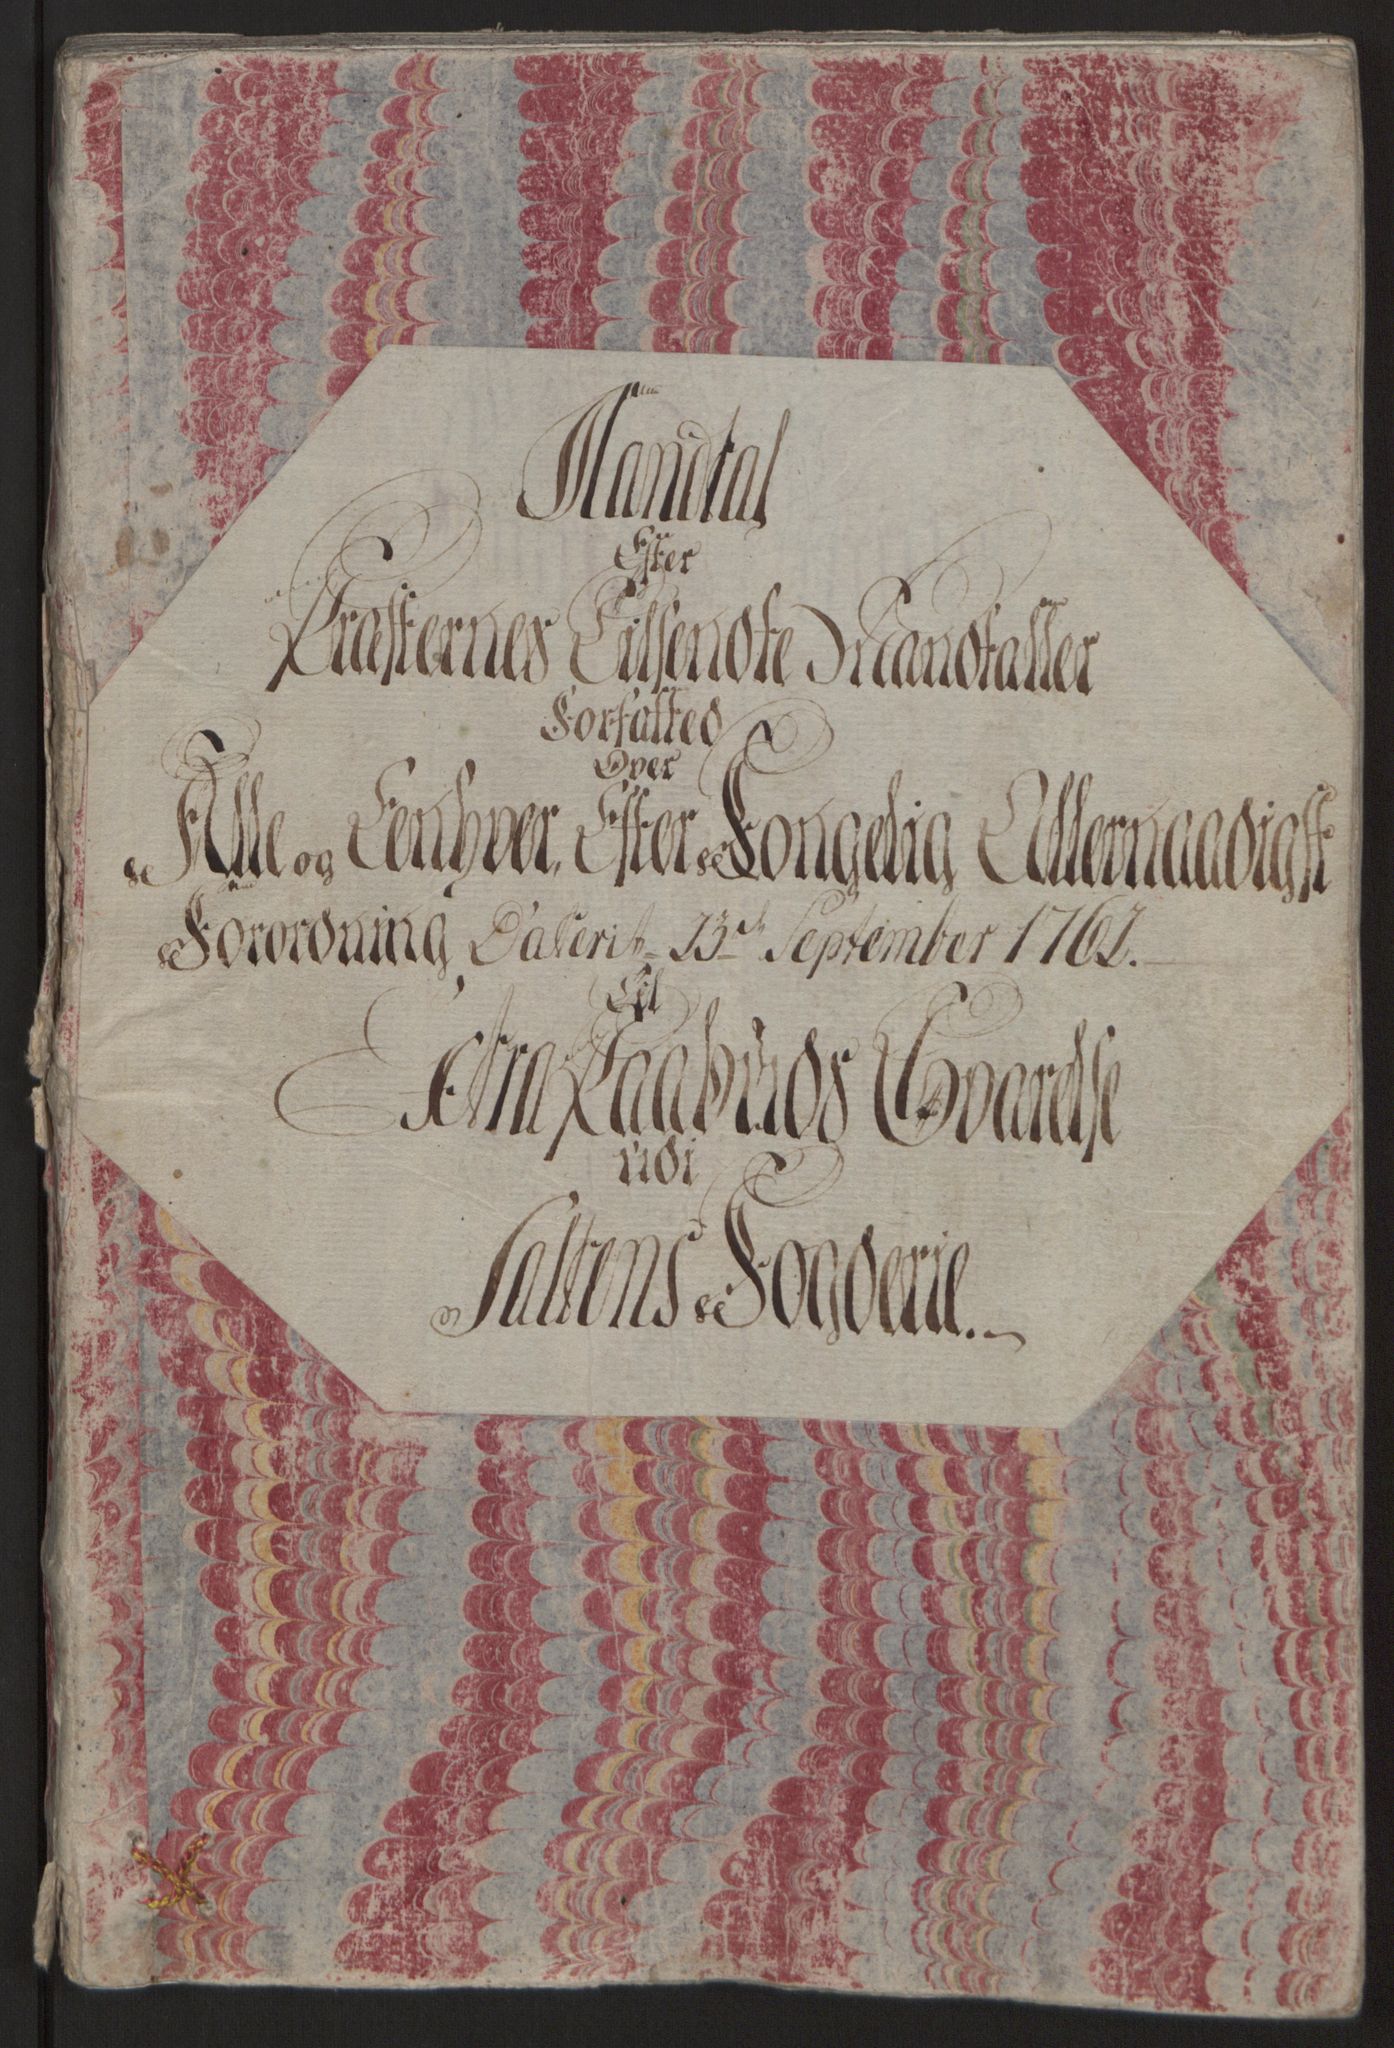 Mandtal
Efter
Præsternes Tilsendte Mandtaller
Forfatted
Over
Alle og Eenhver, Efter Kongelig Allernaadigst
Forordning Daterit 23de September 1762.
Til
Extra Paabuds Svarelse
udi
Saltens Fogderie.